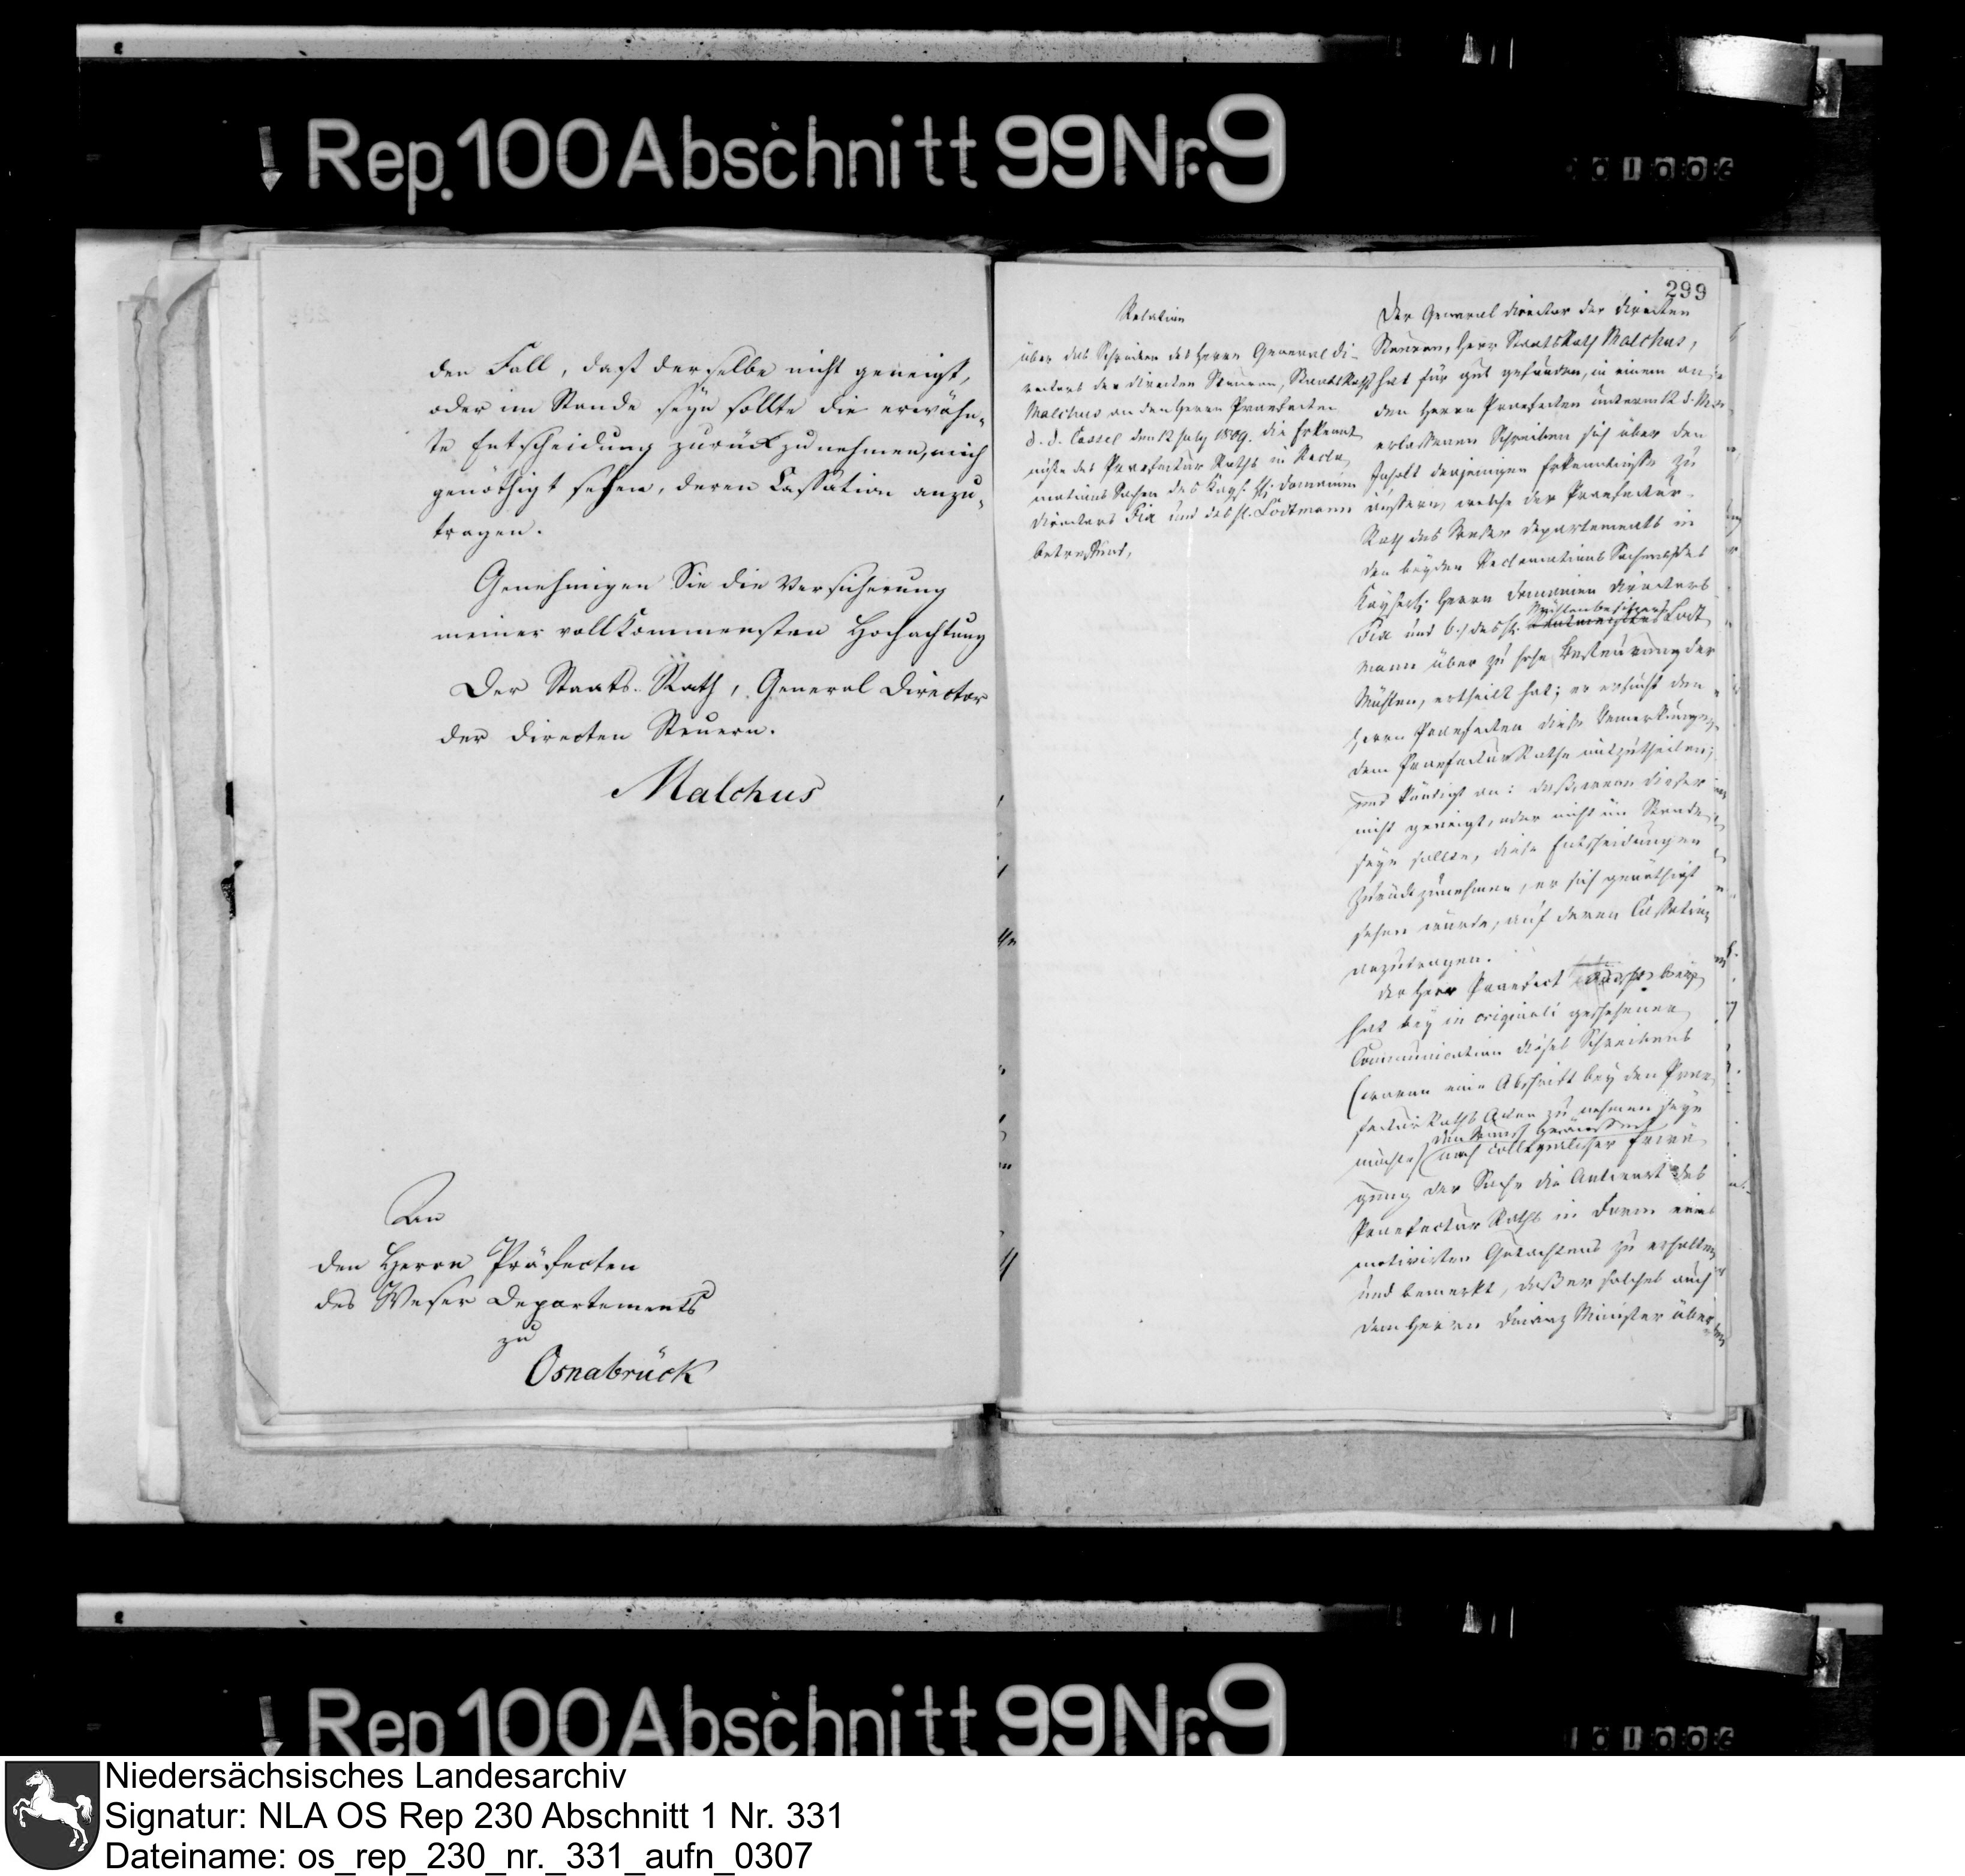 Rep. 100 Abschnitt 99 Nr. 9
den Fall, daß derselbe nicht geneigt,
oder im Stande seyn sollte die erwähn-
te Entscheidung zurückzunehmen, mich
genöthigt sehen, deren Cassation anzu-
tragen.
Genehmigen Sie die Versicherung
meiner vollkommensten Hochachtung
Der Staats-Rath, General Director
der directen Steuern.
Malchus
An
den Herrn Präfecten
des Weser Departements
zu
Osnabrück
299
Relation
über das Schreiben des Herrn General Di-
rectors der directen Steuern, Staats Raths
Malchus an den Herrn Praefecten
d. d. Cassel den 12 July 1809. die Erkennt
nisse des Praefectur Raths in Recla
mations Sachen des Domainen
Directors Fix und des H. Lodtmann
betreffend,
Der General Director der directen
Steuern, Herr Staats Rath Malchus,
hat für gut gefunden, in einem an
den Herrn Praefecten unterm 12 d. M.
erlassenen Schreiben sich über den
Inhalt derjenigen Erkenntnisse zu
äussern, welche der Praefectur
Rath des Weser Departements in
den beyden Reclamations Sachen des
Kayserl. Herrn Domainen Directors
Mühlenbesitzers
Fix und b.) des H. Rentmeisters Lodt
mann über zu hohe Besteurung der
Mühlen, ertheilt hat; er ersucht den
Herrn Praefecten diese Bemerkungen
dem Praefectur Rathe mitzutheilen;
und kündigt an: daß, wenn dieser
nicht geneigt, oder nicht im Stande
seyn sollte, diese Entscheidungen
zurückzunehmen, er sich genöthigt
sehen würde, auf deren Cassation
anzutragen.
Der Herr Praefect
hat bey in originali geschehener
Communication dieses Schreibens
(wovon eine Abschrift bey den Prae
fectur Raths Acten zu nehmen seyn
den Wunsch geäussert
möchte) nach collegialischer Erwä
gung der Sache die Antwort des
Praefectur Raths in Form eines
motivirten Gutachtens zu erhalten
und bemerkt, daß er solches auch
dem Herrn Finanz Minister über
Rep 100 Abschnitt 99 Nr. 9
Niedersächsisches Landesarchiv
Signatur: NLA OS Rep 230 Abschnitt 1 Nr. 331
Dateiname: os_rep_230_nr._331_aufn_0307